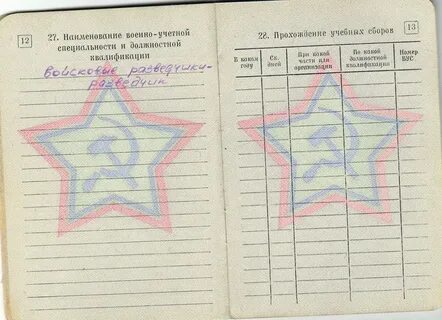 12
27. Наименование военно-учетной
специальности и должностной
квалификации
войсковые разведчики-
разведчик
13
22. Прохождение учебных сборов
В каком году
Ск. дней
При какой части или организации
По какой должностной квалификации
Номер ВУС